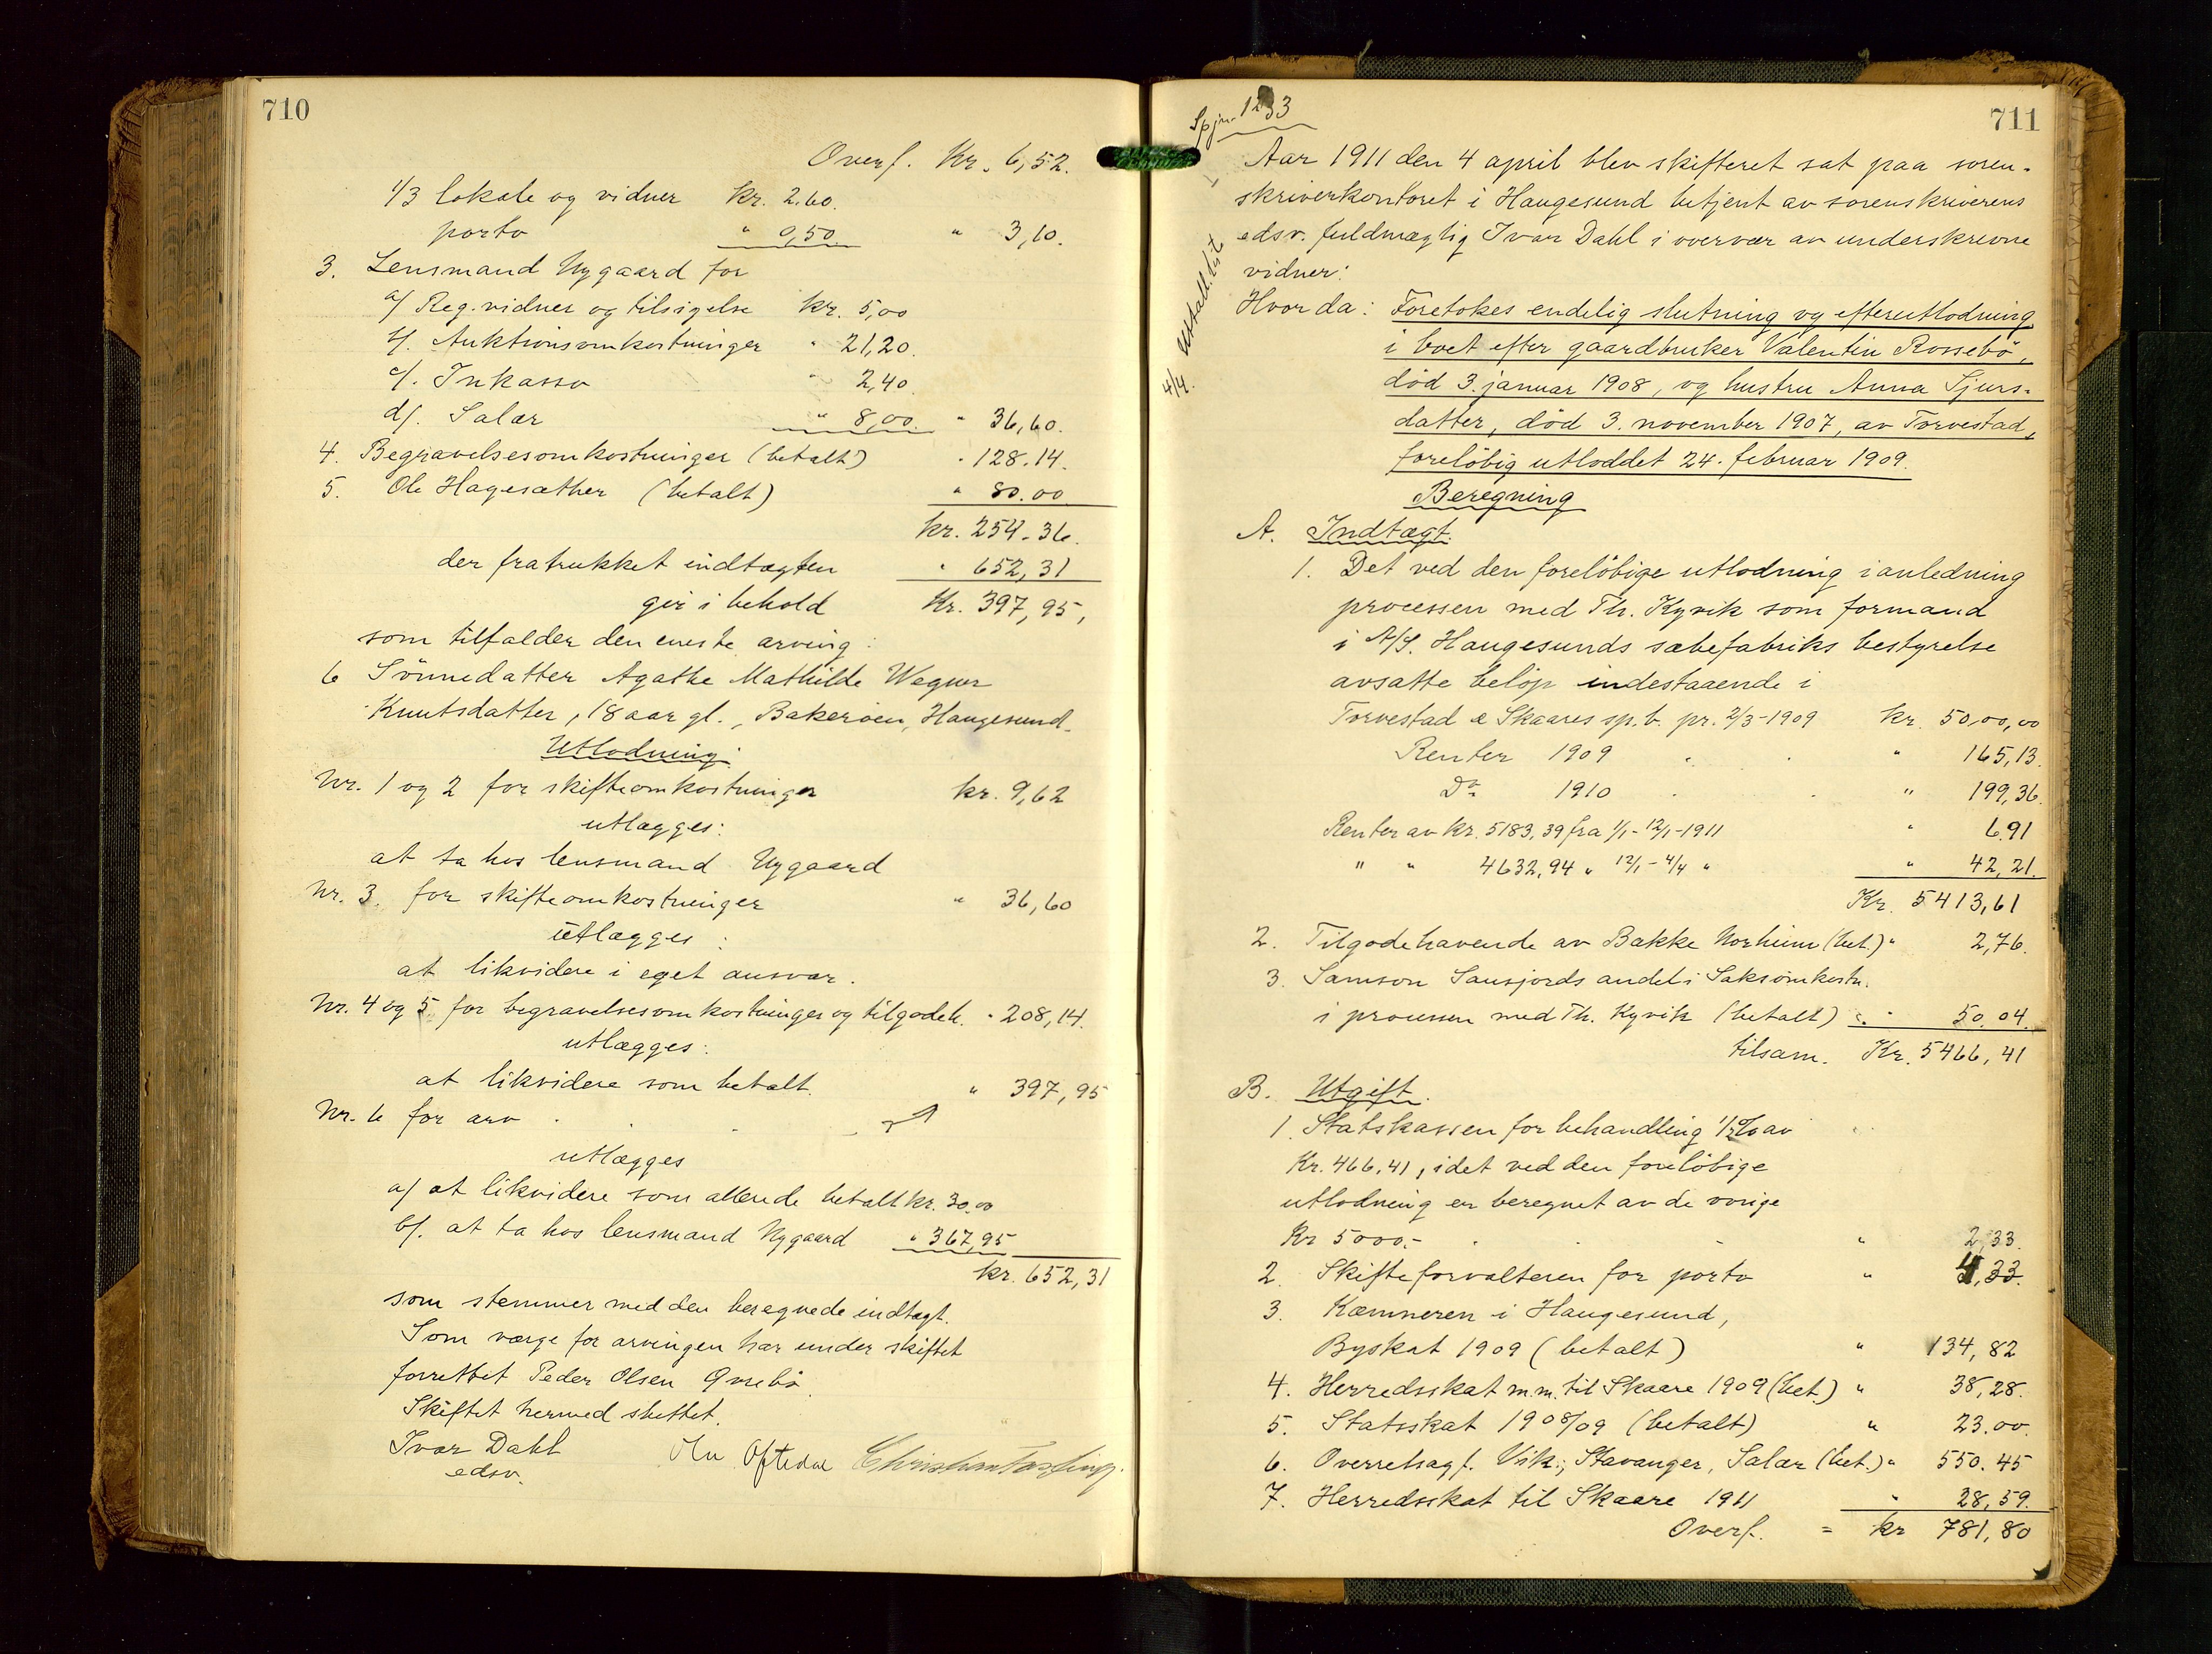 710
Overf. Kr. 6,52.
1/3 lokale og vidner kr. 2.60.
porto " 0,50. " 3,10.
3. Lensmand Nygaard for
a/ Reg. vidner og tilsigelse kr. 5,00
b/. Auktionsomkostninger " 21,20.
c/. Inkasso " 2,40.
d/. Salær " 8,00. " 36,60.
4. Begravelsesomkostninger (betalt) " 128.14.
5. Ole Hagesæther (betalt) " 80.00
kr. 254.36.
der fratrukket indtægten " 652,31
gir i behold Kr. 397,95,
som tilfalder den eneste arving:
6 Sönnedatter Agathe Mathilde Wegner
Knutsdatter, 18 aar gl., Bakeröen, Haugesund.
Utlodning:
Nr. 1 og 2 for skifteomkostninger kr. 9,62
utlægges:
at ta hos lensmand Nygaard
Nr. 3. for skifteomkostninger " 36,60
utlægges:
at likvidere i eget ansvar.
Nr. 4 og 5 for begravelsesomkostninger og tilgodeh. " 208,14.
utlægges:
at likvidere som betalt. " 397,95
Nr. 6 for arv
utlægges
a/ at likvidere som allerede betalt kr. 30.00
b/. at ta hos lensmand Nygaard " 367,95
kr. 652,31
som stemmer med den beregnede indtægt.
Som værge for arvingen har under skiftet
forrettet Peder Olsen Qvrebö.
Skiftet hermed sluttet.
Ivar Dahl
edsv.
Oftedal Christian
711
Spjn. 1233
Utskall. list
4/4.
Aar 1911 den 4 april blev skifteret sat paa soren-
skriverkontoret i Haugesund betjent av sorenskriverens
edsv. fuldmægtig Ivar Dahl i overvær av underskrevne
vidner:
Hvor da: Foretokes endelig slutning og efterutlodning
i boet efter gaardbruker Valentin Rossebö,
död 3. januar 1908, og hustru Anna Sjurs-
datter, död 3. november 1907, av Torvestad,
foreløbig utloddet 24. februar 1909.
Beregning
A. Indtægt.
1. Det ved den foreløbige utlodning i anledning
processen med Th. Kyvik som formand
i A/S. Haugesunds sæbefabriks bestyrelse
avsatte beløp indestaaende i
Torvestad & Skaares sp.b. pr. 2/3-1909 kr. 50,00,00
Renter 1909 " 165,13.
Do 1910 " 199,36.
Renter av kr. 5183,39 fra 1/1-12/1-1911 " 6.91
" " 4632,94 " 12/1-4/4 " " 42,21.
Kr. 5413,61
2. Tilgodehavende av Bakke Norheim (bet.) " 2,76.
3. Samson Sausjords andel i Saksomkostn.
i processen med Th. Kyvik (betalt) " 50.04.
tilsam. Kr. 5466,41
B. Utgift.
1. Statskassen for behandling 1/2 % av
Kr. 466,41, idet ved den foreløbige
utlodning er beregnet av de øvrige
Kr 5000,- " 2,33.
2. Skifteforvalteren for porto " 4,33.
3. Kæmneren i Haugesund,
Byskat 1909 (betalt) " 134,82
4. Herredsskat m.m. til Skaare 1909 (bet.) " 38,28.
5. Statsskat 1908/09 (betalt) " 23.00.
6. Overretsagf. Vik, Stavanger, Salær (bet.) " 550.45
7. Herredsskat til Skaare 1911 " 28,59.
Overf. = kr 781,80